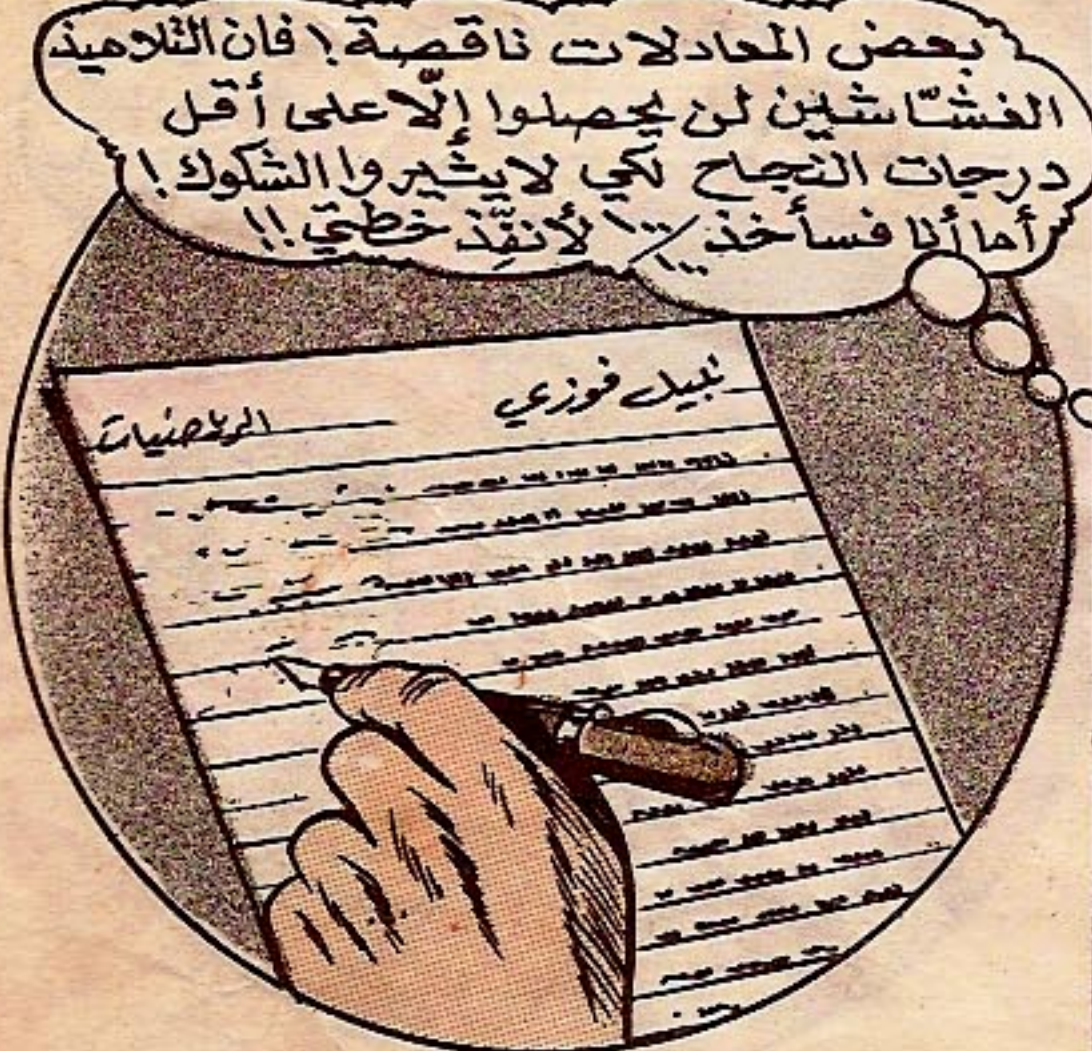 بعض المعادلات ناقصة! فان التلاميذ
الغشّاشين لن يحصلوا إلّا على أقل
درجات النجاح لكي لا يثيروا الشكوك!
أما أنا فسآخذ ٪١٠٠ لأنفّذ خطتي!!
نبيل فوزي
الرياضيات